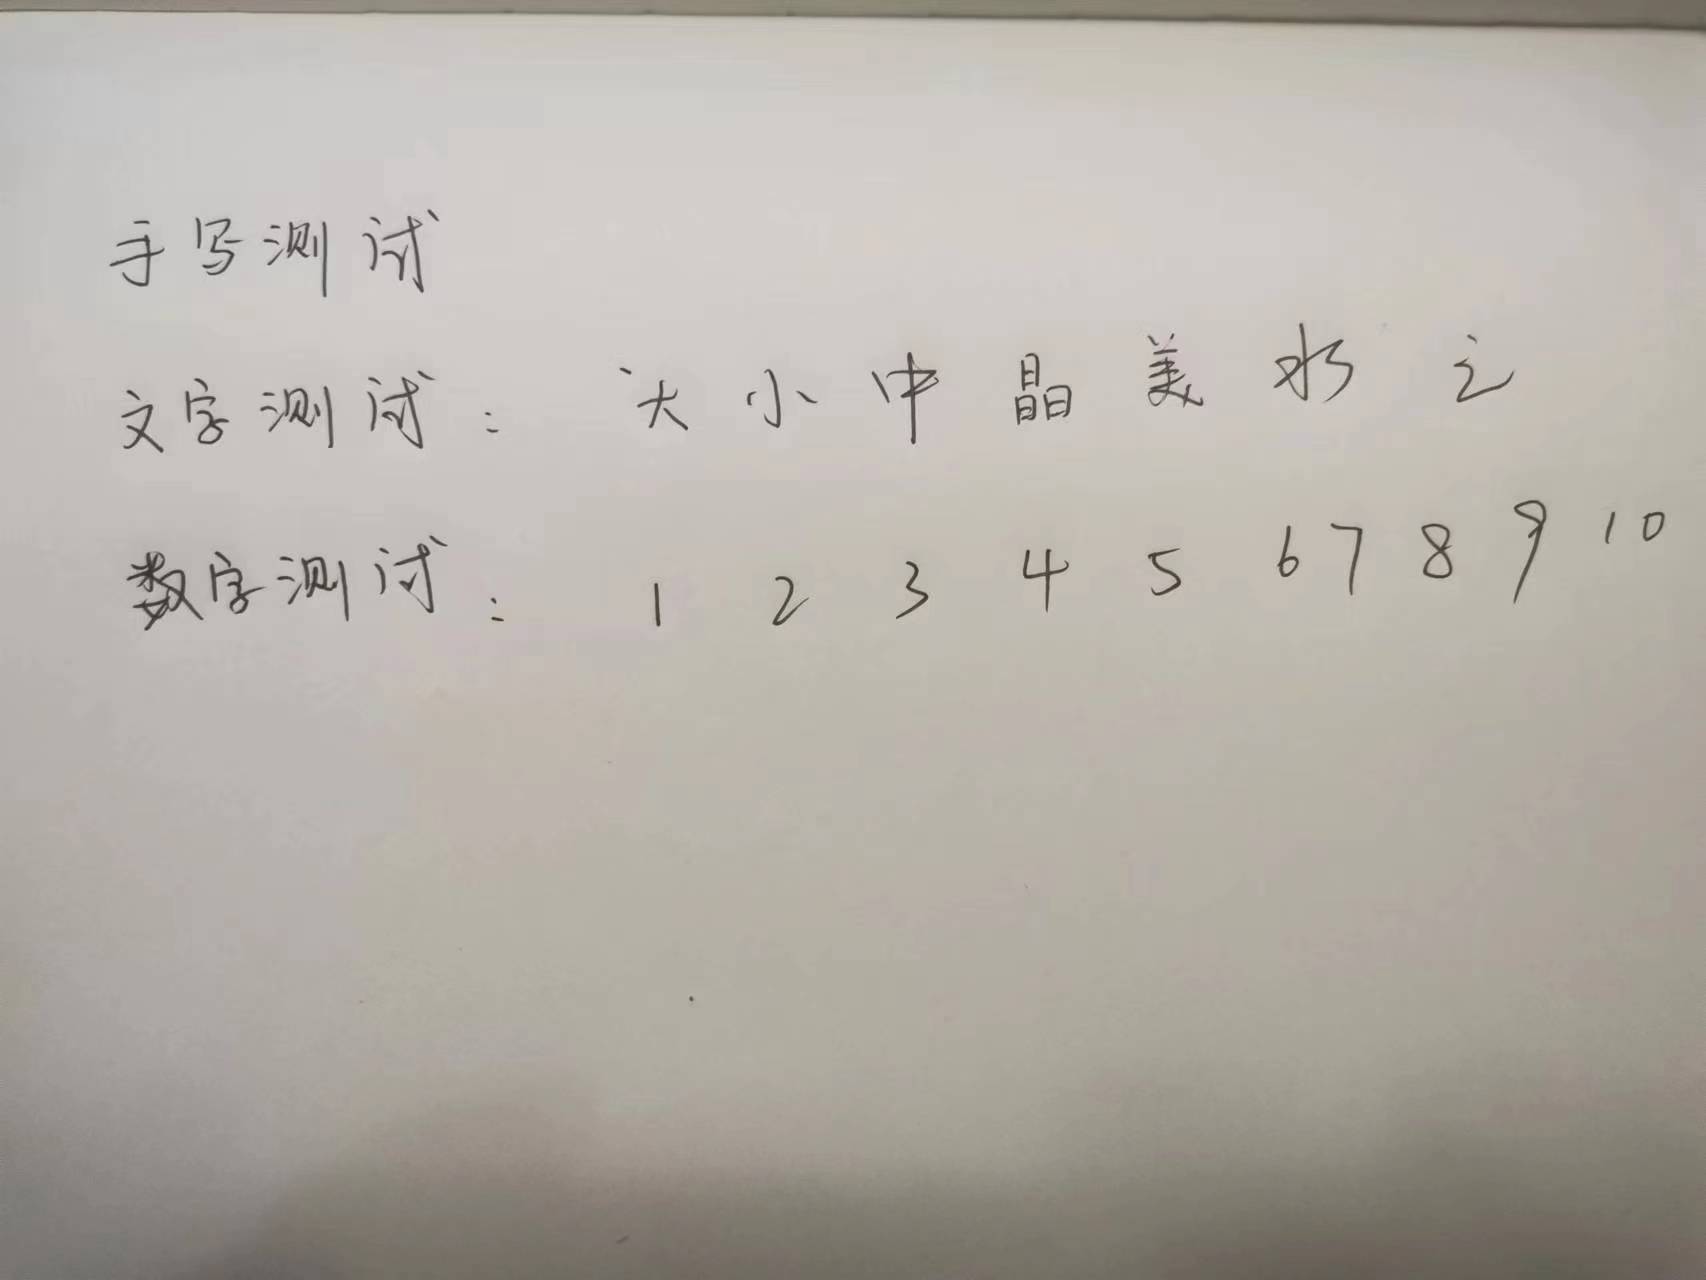 手写测试
文字测试： 大 小 中 晶 美 水 之
数字测试： 1 2 3 4 5 6 7 8 9 10